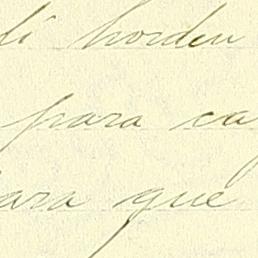 di horden
para ca
para que